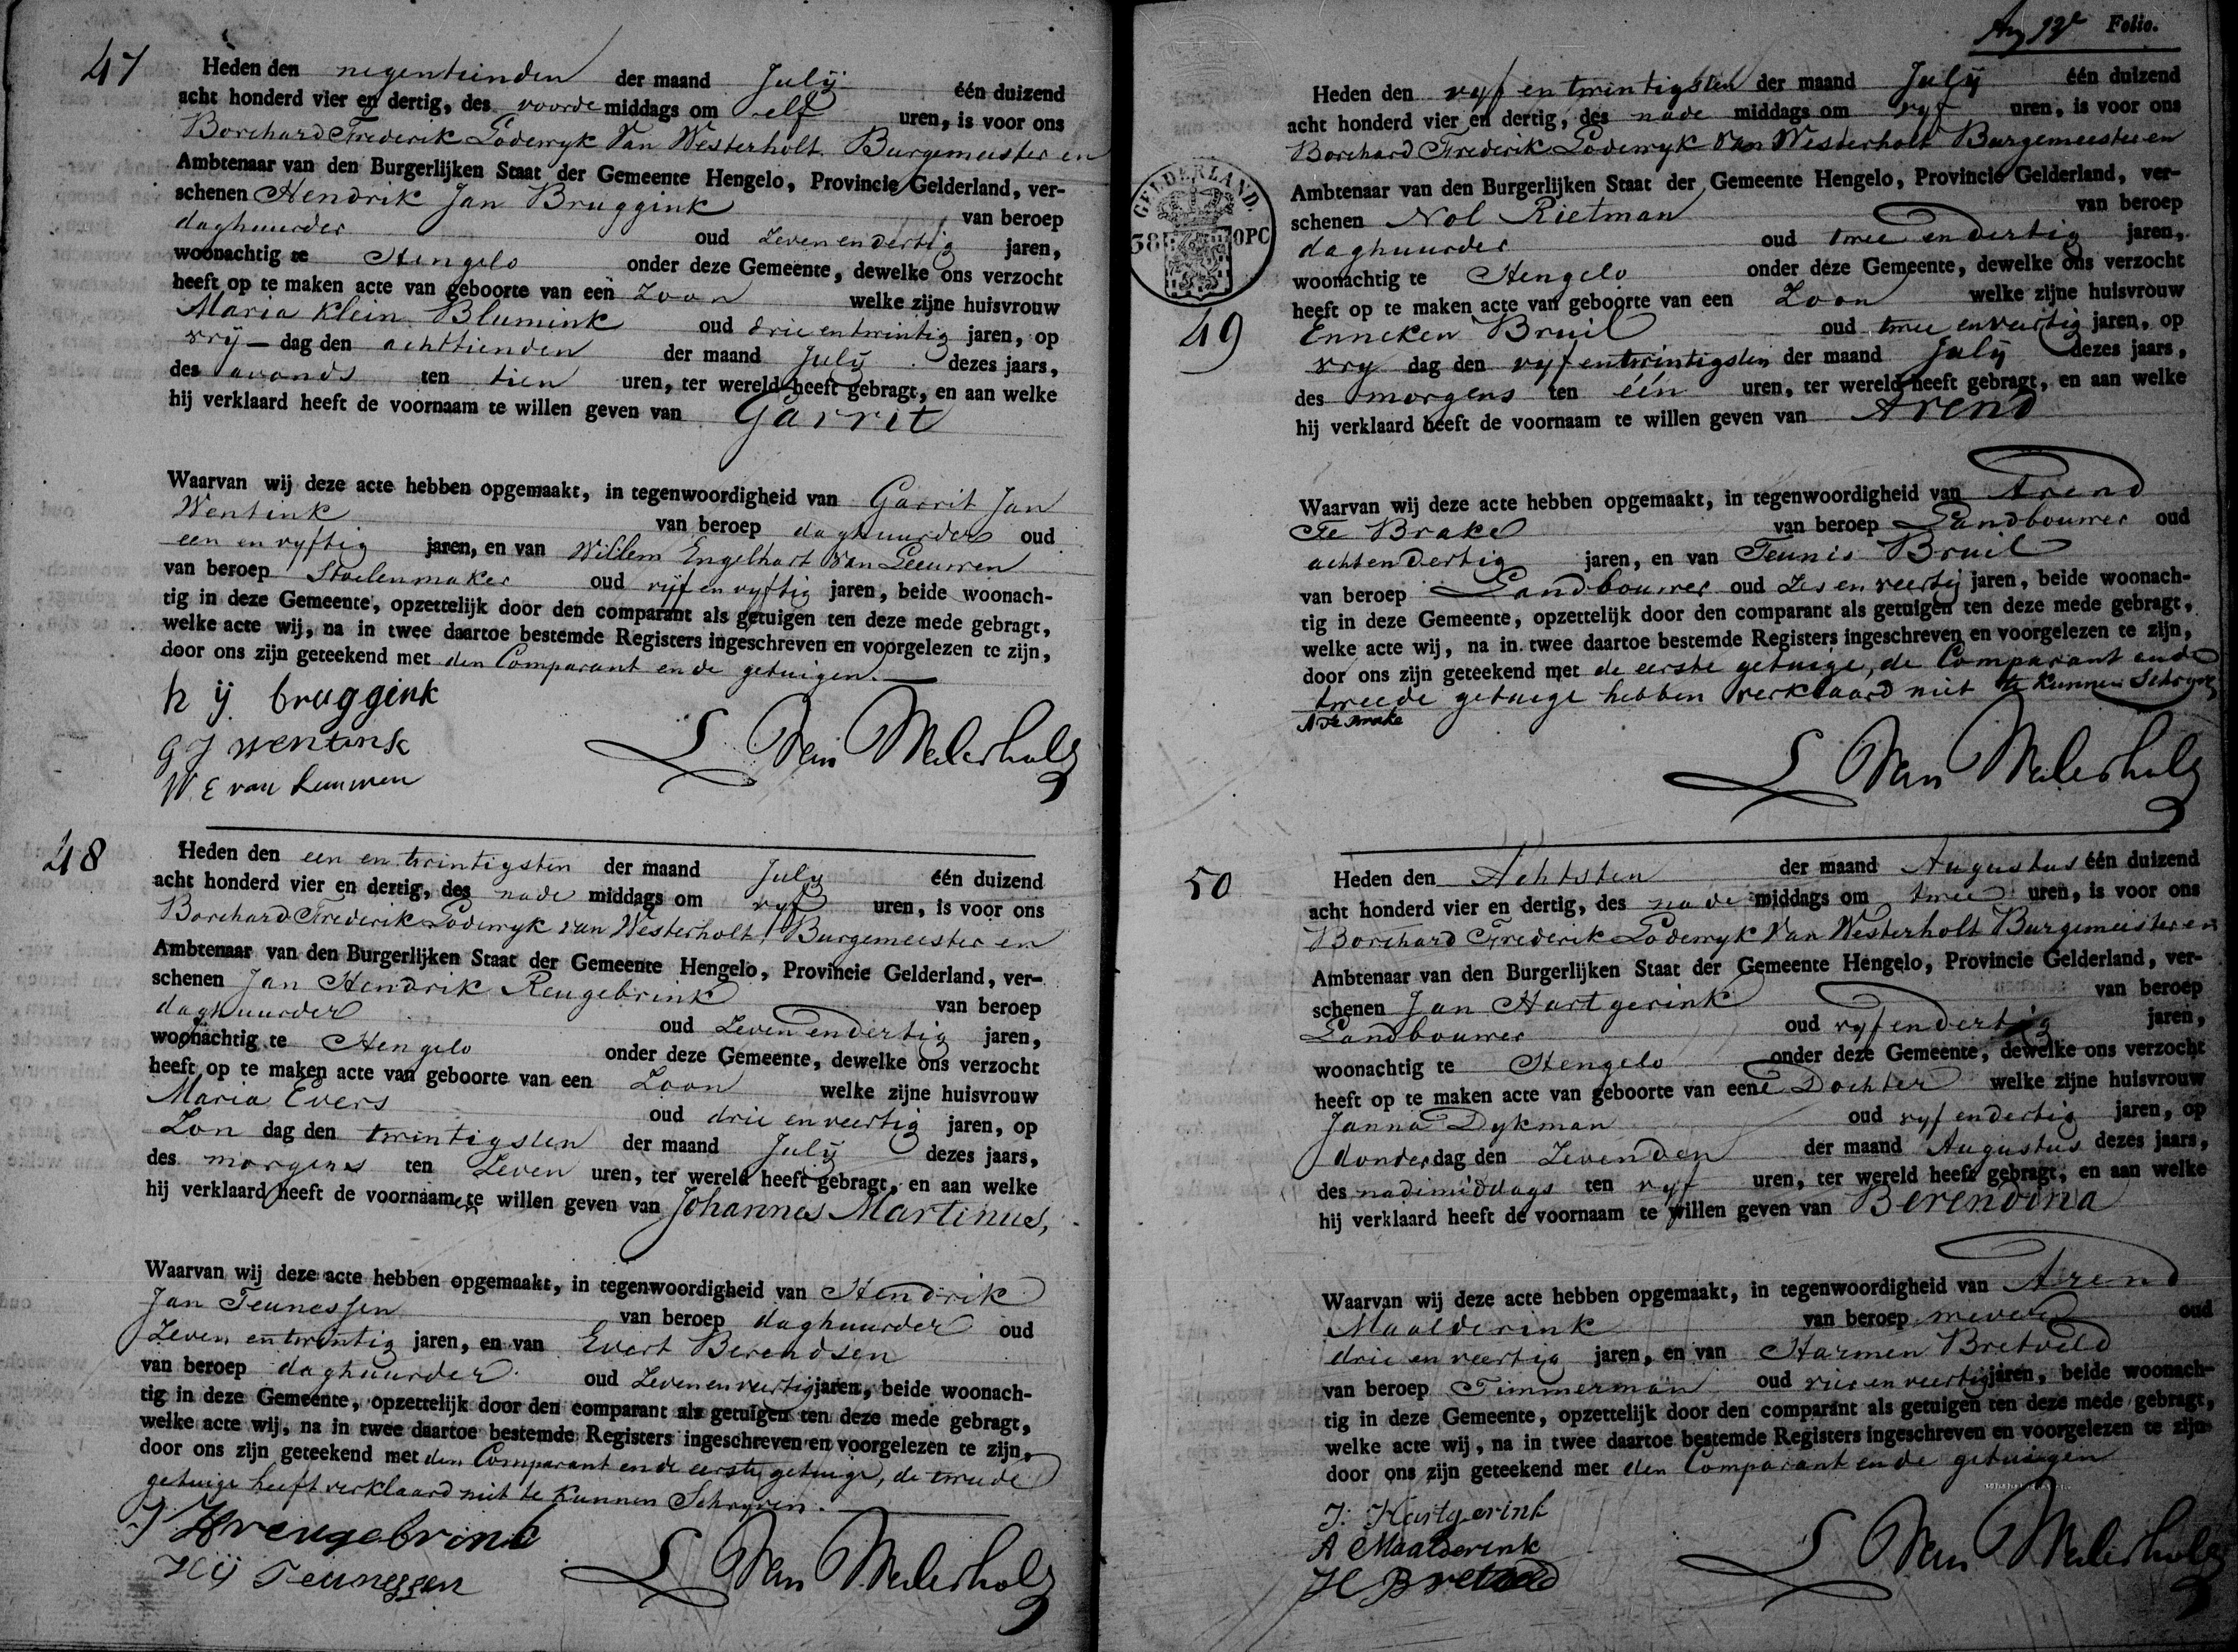 47
Heden den negentienden der maand Julij één duizend
acht honderd vier en dertig, des voorde middags om elf uren, is voor ons
Borchard Frederik Lodewyk Van Westerholt Burgemeester en
Ambtenaar van den Burgerlijken Staat der Gemeente Hengelo, Provincie Gelderland, ver-
schenen Hendrik Jan Bruggink van beroep
daghuurder oud Zevenendertig jaren,
woonachtig te Hengelo onder deze Gemeente, dewelke ons verzocht
heeft op te maken acte van geboorte van een Zoon welke zijne huisvrouw
Maria Klein Blumink oud drie en twintig jaren, op
vrij dag den achttienden der maand Julij dezes jaars,
des avonds ten tien uren, ter wereld heeft gebragt, en aan welke
hij verklaard heeft de voornaam te willen geven van Garrit
Waarvan wij deze acte hebben opgemaakt, in tegenwoordigheid van Garrit Jan
Wentink van beroep daghuurder oud
een en vyftig jaren, en van Willem Engelhart Van Leeuwen
van beroep Stoelenmaker oud vijf en vyftig jaren, beide woonach-
tig in deze Gemeente, opzettelijk door den comparant als getuigen ten deze mede gebragt,
welke acte wij, na in twee daartoe bestemde Registers ingeschreven en voorgelezen te zijn,
door ons zijn geteekend met den Comparant en de getuigen.
h ij bruggink
G J Wentink
W E van Leuwen
L Van Westerholt
48
Heden den een en twintigsten der maand July één duizend
acht honderd vier en dertig, des nade middags om vyf uren, is voor ons
Borchard Frederik Lodewyk van Westerholt, Burgemeester en
Ambtenaar van den Burgerlijken Staat der Gemeente Hengelo, Provincie Gelderland, ver-
schenen Jan Hendrik Reugebrink van beroep
daghuurder oud Zevenendertig jaren,
woonachtig te Hengelo onder deze Gemeente, dewelke ons verzocht
heeft op te maken acte van geboorte van een Zoon welke zijne huisvrouw
Maria Evers oud drie en veertig jaren, op
Zon dag den twintigsten der maand Julij dezes jaars,
des morgens ten Zeven uren, ter wereld heeft gebragt, en aan welke
hij verklaard heeft de voornaamen te willen geven van Johannes Martinus,
Waarvan wij deze acte hebben opgemaakt, in tegenwoordigheid van Hendrik
Jan Teunessen van beroep daghuurder oud
Zeven entwintig jaren, en van Evert Berendsen
van beroep daghuurder oud Zevenenveertig jaren, beide woonach-
tig in deze Gemeente, opzettelijk door den comparant als getuigen ten deze mede gebragt,
welke acte wij, na in twee daartoe bestemde Registers ingeschreven en voorgelezen te zijn,
door ons zijn geteekend met den Comparant en de eerste getuige, de tweede
getuige heeft verklaard niet te kunnen Schryven.
J H reugebrink
H ij Teunessen
L Van Westerholt
Folio.
Heden den vyf en twintigsten der maand Julij één duizend
acht honderd vier en dertig, des nade middags om vyf uren, is voor ons
Borchard Frederik Lodewyk Van Westerholt Burgemeester en
Ambtenaar van den Burgerlijken Staat der Gemeente Hengelo, Provincie Gelderland, ver-
GELDERLAND.
38 OPC
schenen Nol Rietman van beroep
daghuurder oud twee en dertig jaren,
woonachtig te Hengelo onder deze Gemeente, dewelke ons verzocht
heeft op te maken acte van geboorte van een Zoon welke zijne huisvrouw
49
Enneken Bruil oud twee enveertig jaren, op
vry dag den vyf entwintigsten der maand Julij dezes jaars,
des morgens ten één uren, ter wereld heeft gebragt, en aan welke
hij verklaard heeft de voornaam te willen geven van Arend
Waarvan wij deze acte hebben opgemaakt, in tegenwoordigheid van Arend
Te Brake van beroep Landbouwer oud
achtendertig jaren, en van Teunis Bruil
van beroep Landbouwer oud Zes en veertig jaren, beide woonach-
tig in deze Gemeente, opzettelijk door den comparant als getuigen ten deze mede gebragt,
welke acte wij, na in twee daartoe bestemde Registers ingeschreven en voorgelezen te zijn,
door ons zijn geteekend met de eerste getuige, de Comparant en de
tweede getuige hebben verklaard niet te kunnen Schryven
A te Brake
L Van Westerholt
50
Heden den Achtsten der maand Augustus één duizend
acht honderd vier en dertig, des nade middags om twee uren, is voor ons
Borchard Frederik Lodewyk Van Westerholt Burgemeester en
Ambtenaar van den Burgerlijken Staat der Gemeente Hengelo, Provincie Gelderland, ver-
schenen Jan Hartgerink van beroep
Landbouwer oud vyfendertig jaren,
woonachtig te Hengelo onder deze Gemeente, dewelke ons verzocht
heeft op te maken acte van geboorte van eene Dochter welke zijne huisvrouw
Janna Dykman oud vyf endertig jaren, op
donderdag den Zevenden der maand Augustus dezes jaars,
des nademiddags ten vyf uren, ter wereld heeft gebragt, en aan welke
hij verklaard heeft de voornaam te willen geven van Berendina
Waarvan wij deze acte hebben opgemaakt, in tegenwoordigheid van Arend
Maalderink van beroep wever oud
drie en veertig jaren, en van Harmen Bretveld
van beroep Timmerman oud vier en veertig jaren, beide woonach-
tig in deze Gemeente, opzettelijk door den comparant als getuigen ten deze mede gebragt,
welke acte wij, na in twee daartoe bestemde Registers ingeschreven en voorgelezen te zijn
door ons zijn geteekend met den Comparant en de getuigen
J. Hartgerink
A Maalderink
H Bretveld
L Van Westerholt